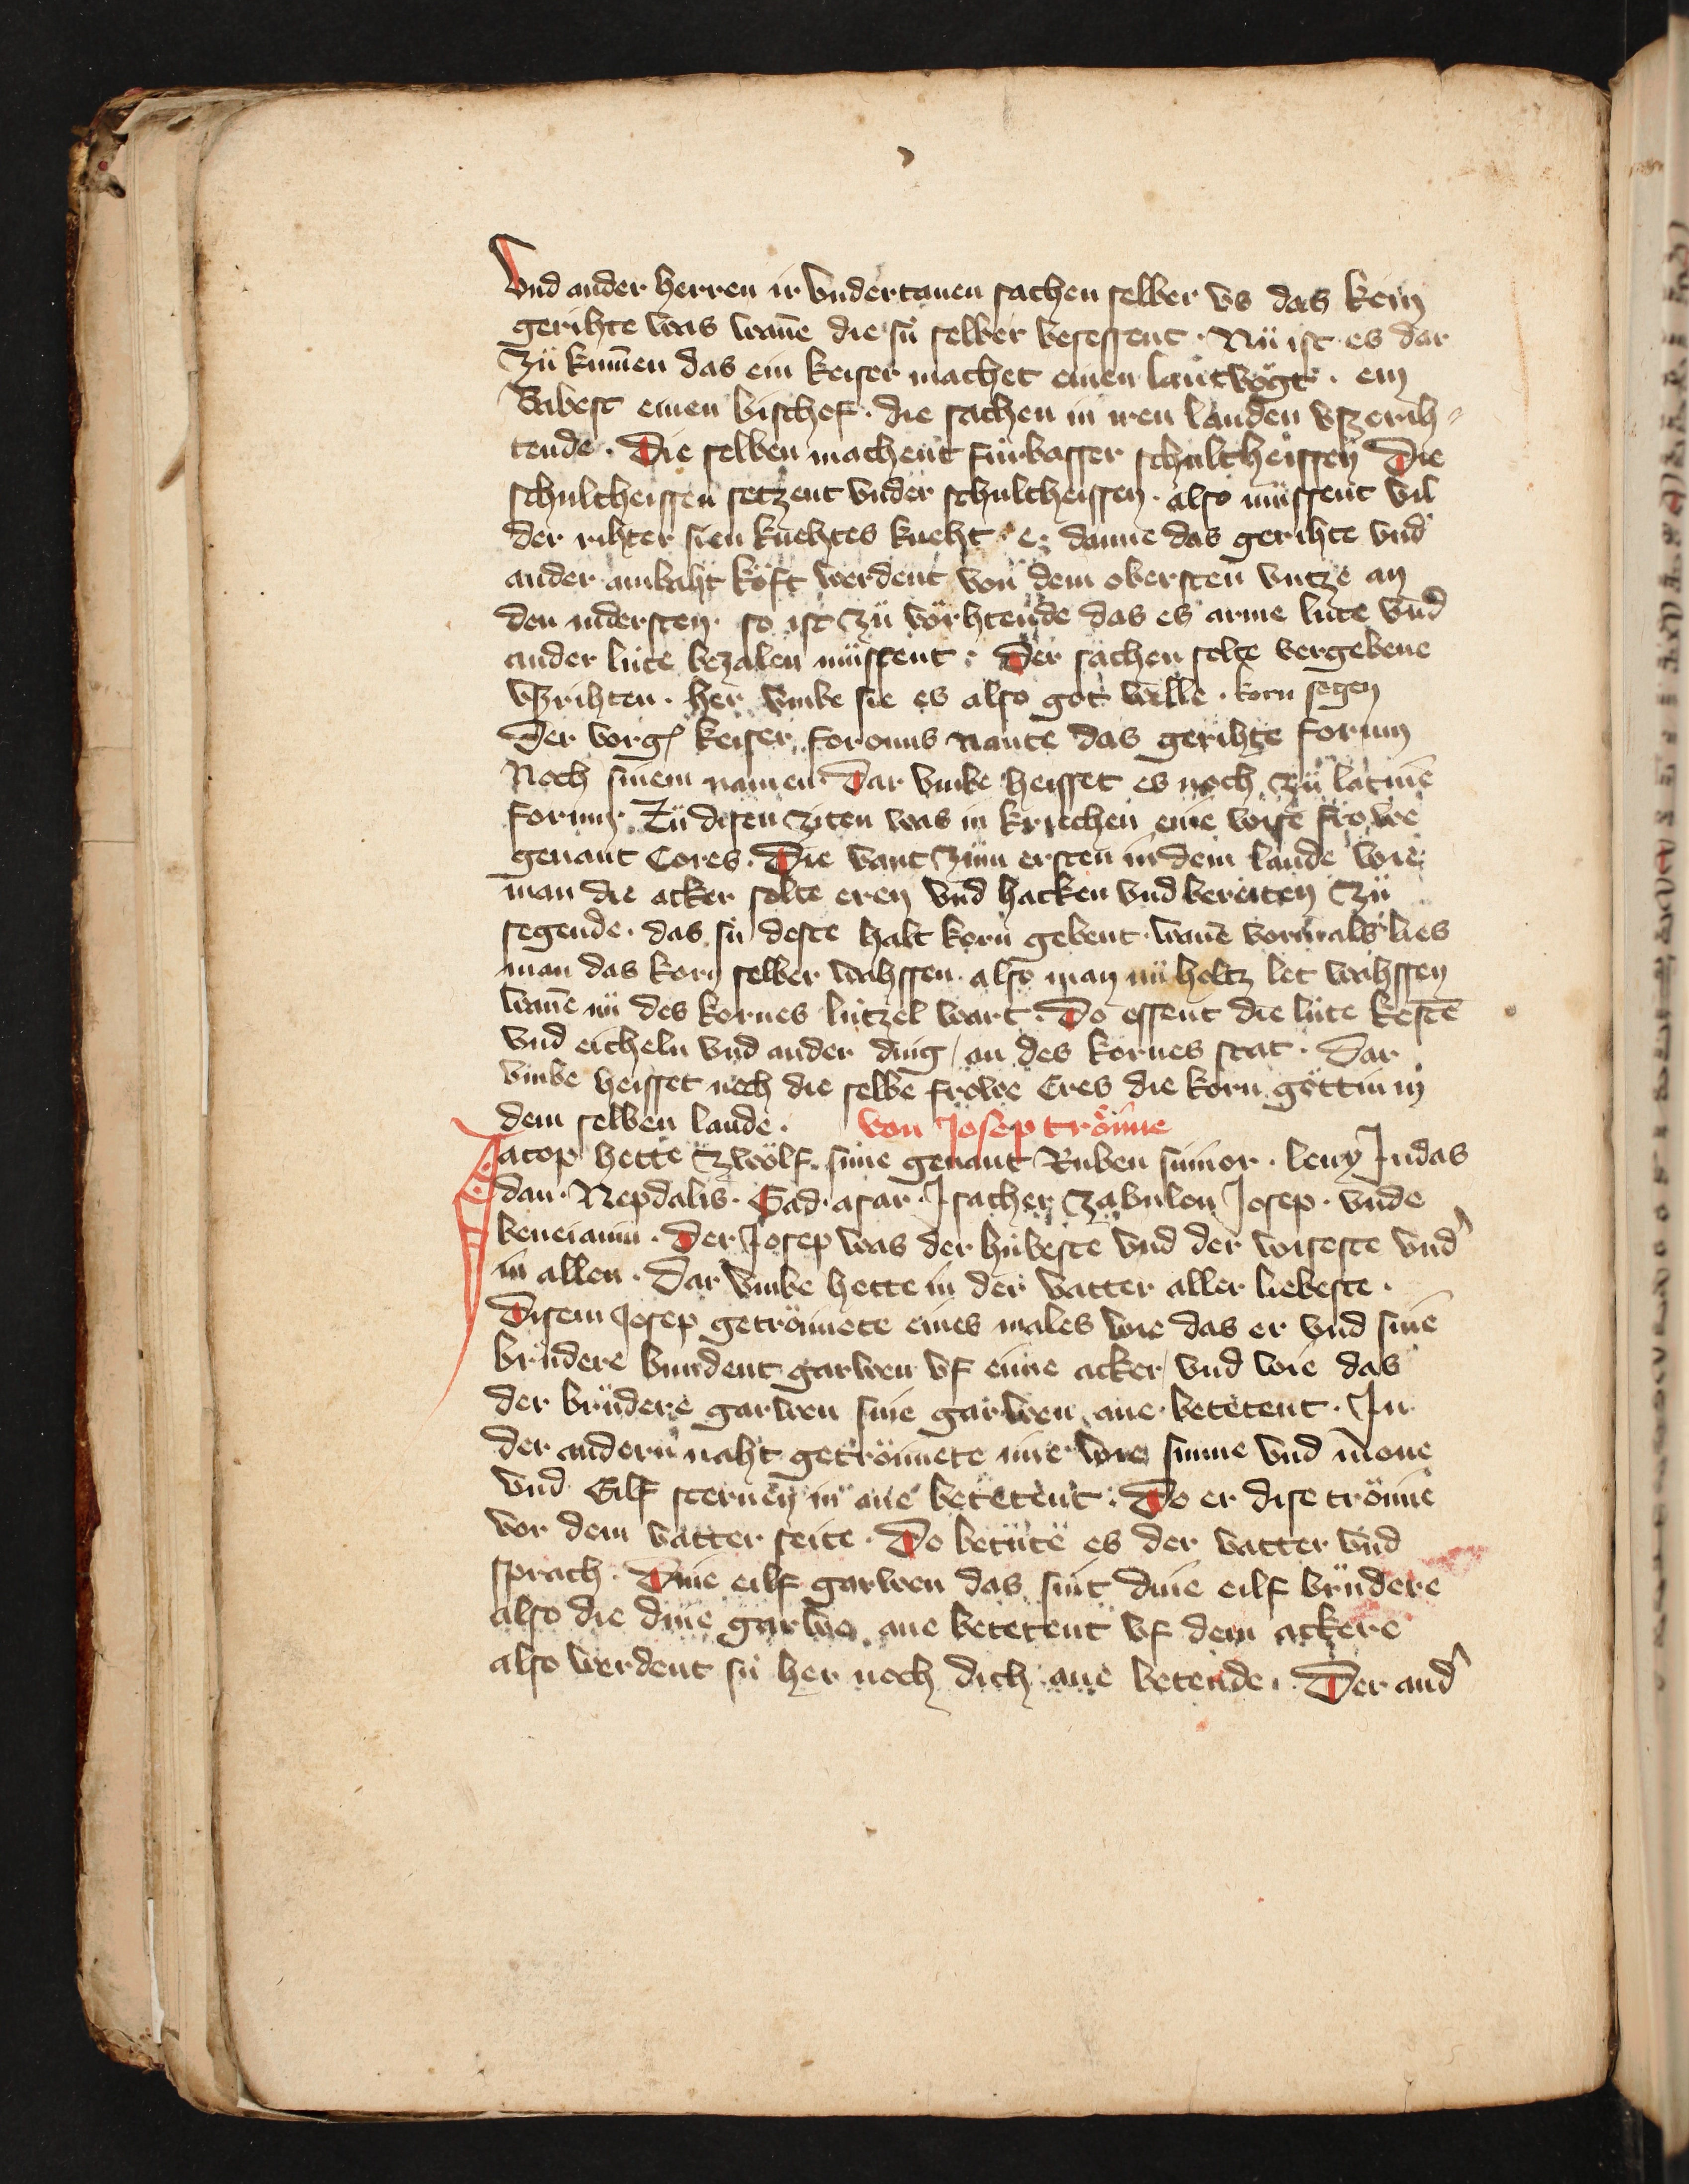 Vnd ander herren ir vndertanen sachen selber vs das kein
gerihte was wañe die sú selber besessent · Nü ist es dar
zü kum̄en das ein keiser machet einen lantvögt · ein
Babest einen bischof · die sachen in iren landen vszerih-
tende · Die selben machent fúrbasser schultheissen Die
schultheissen setzent vnder schultheissen · also müssent vil
der rihter sien knehtes kneht · e· danne das gerihte vnd
ander ambaht köft werdent von dem obersten vntze an
den nidersten · so ist zü vörhtende das es arme lúte vnd
ander lúte bezalen müssent · Der sachen solte vergebene
vsrihten · her vmbe sie es also got welle · korn segen
Der vorg̃ keiser foronus nante das gerihte forum
Noch sinem namen Dar vmbe heisset es noch zü latine
forum · Zü disen ziten was in kriechen eine wise frowe
genant Ceres · Die vant zum ersten in dem lande wie
man die acker solte eren vnd hacken vnd bereiten zü
segende · das sú deste halt korn gebent · wañe vormals lies
man das korn selber wahssen · also man nü holtz let wahssen
wañe nü des kornes lútzel wart · Do essent die lúte kestē
vnd eicheln vnd ander ding / an des kornes stat · Dar
vmbe heisset noch die selbe frowe Ceres die korn göttin in
dem selben lande · von Josep tröme
Jacop hette zwölf súne genant Ruben simeon · leuy Judas
dan · Nepdalis · Gad · asar · Jsacher zabulon Josep · vnde
beneiamin · Der Josep was der húbeste vnd der wiseste vnd
in allen · Dar vmbe hette in der vatter aller liebeste ·
Disem Josep getrömete eines males wie das er vnd sine
brüdere bundent garwen vf eime acker / vnd wie das
der brüdere garwen sine garwen ane betetent · In
der andern naht getrömete ime wie sunne vnd mone
vnd Eilf sternen in ane betetent · Do er dise tröme
vor dem vatter seite · Do betúte es der vatter vnd
sprach · Dine eilf garwen das sint dine eilf brüdere
also die dine garwe ane betetent vf dem ackere
also werdent sú her noch dich ane betende · Der and̕